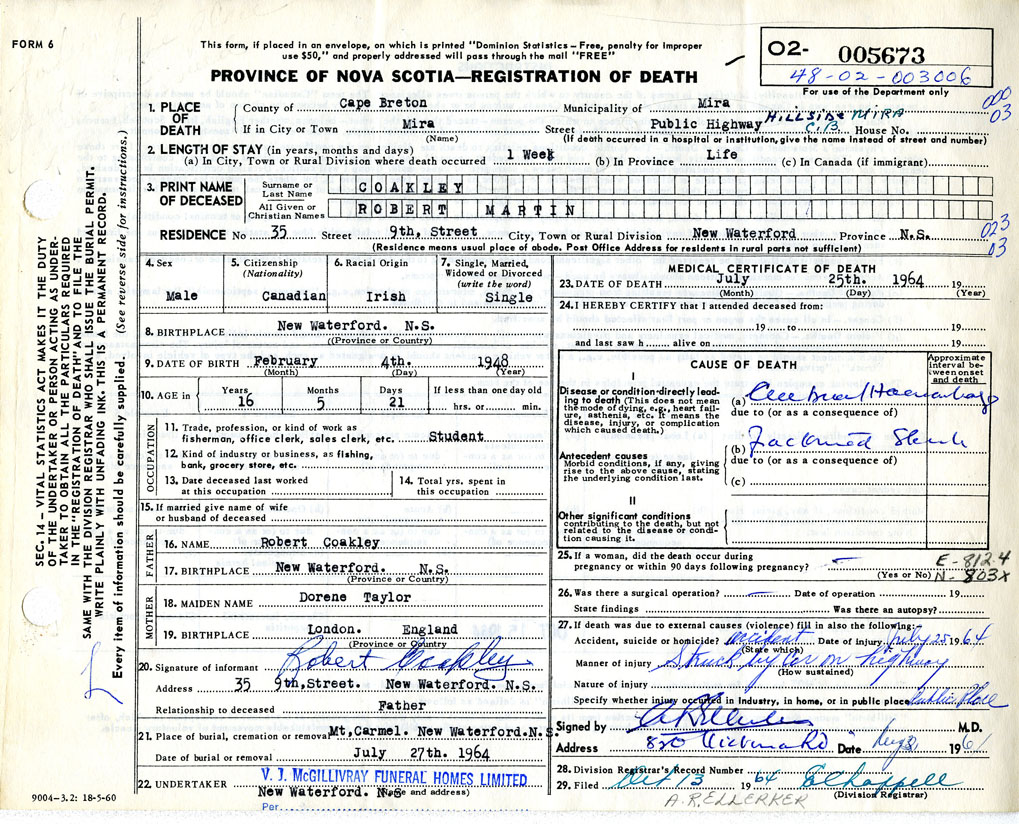 FORM 6
This form, if placed in an envelope, on which is printed "Dominion Statistics – Free, penalty for improper
use $50," and properly addressed will pass through the mail "FREE"
PROVINCE OF NOVA SCOTIA—REGISTRATION OF DEATH
02- 005673
48-02-003006
For use of the Department only
SEC. 14 – VITAL STATISTICS ACT MAKES IT THE DUTY
OF THE UNDERTAKER OR PERSON ACTING AS UNDER-
TAKER TO OBTAIN ALL THE PARTICULARS REQUIRED
IN THE "REGISTRATION OF DEATH" AND TO FILE THE
SAME WITH THE DIVISION REGISTRAR WHO SHALL ISSUE THE BURIAL PERMIT.
WRITE PLAINLY WITH UNFADING INK. THIS IS A PERMANENT RECORD.
Every item of information should be carefully supplied. (See reverse side for instructions.)
1. PLACE OF DEATH
County of Cape Breton Municipality of Mira
000
03
HILLSIDE MIRA
C.B.
If in City or Town Mira Street Public Highway House No.
(Name) (If death occurred in a hospital or institution, give the name instead of street and number)
2. LENGTH OF STAY (in years, months and days)
(a) In City, Town or Rural Division where death occurred 1 Week (b) In Province Life (c) In Canada (if immigrant)
3. PRINT NAME OF DECEASED
Surname or Last Name COAKLEY
All Given or Christian Names ROBERT MARTIN
RESIDENCE No 35 Street 9th, Street City, Town or Rural Division New Waterford Province N.S.
023
03
(Residence means usual place of abode. Post Office Address for residents in rural parts not sufficient)
4. Sex
Male
5. Citizenship (Nationality)
Canadian
6. Racial Origin
Irish
7. Single, Married, Widowed or Divorced (write the word)
Single
8. BIRTHPLACE New Waterford. N.S.
((Province or Country)
9. DATE OF BIRTH February 4th. 1948
(Month) (Day) (Year)
10. AGE in Years 16 Months 5 Days 21 If less than one day old hrs. or min.
OCCUPATION
11. Trade, profession, or kind of work as
fisherman, office clerk, sales clerk, etc. Student
12. Kind of industry or business, as fishing,
bank, grocery store, etc.
13. Date deceased last worked
at this occupation
14. Total yrs. spent in
this occupation
15. If married give name of wife
or husband of deceased
FATHER
16. NAME Robert Coakley
17. BIRTHPLACE New Waterford. N.S.
(Province or Country)
MOTHER
18. MAIDEN NAME Dorene Taylor
19. BIRTHPLACE London. England
(Province or Country)
20. Signature of informant Robert Coakley
Address 35 9th,Street. New Waterford. N.S.
Relationship to deceased Father
21. Place of burial, cremation or removal Mt,Carmel. New Waterford.N.S.
Date of burial or removal July 27th. 1964
22. UNDERTAKER V. J. McGILLIVRAY FUNERAL HOMES LIMITED
New Waterford. N.S. (Name and address)
9004-3.2: 18-5-60
Per.
MEDICAL CERTIFICATE OF DEATH
23. DATE OF DEATH July 25th. 1964 19
(Month) (Day) (Year)
24. I HEREBY CERTIFY that I attended deceased from:
19 to 19
and last saw h alive on 19
CAUSE OF DEATH
Approximate interval between onset and death
I
Disease or condition directly leading to death (This does not mean
the mode of dying, e.g., heart failure, asthenia, etc. It means the
disease, injury, or complication
which caused death.)
(a) Cerebral Haemorrhage
due to (or as a consequence of)
(b) Fractured Skull
due to (or as a consequence of)
(c)
Antecedent causes
Morbid conditions, if any, giving
rise to the above cause, stating
the underlying condition last.
II
Other significant conditions
contributing to the death, but not
related to the disease or condition causing it.
25. If a woman, did the death occur during
pregnancy or within 90 days following pregnancy? –
(Yes or No)
E-812.4
N-803X
26. Was there a surgical operation? – Date of operation 19
State findings Was there an autopsy?
27. If death was due to external causes (violence) fill in also the following:
Accident, suicide or homicide? accident Date of injury July 25 1964
(State which)
Manner of injury Struck by car on highway
(How sustained)
Nature of injury
Specify whether injury occurred in industry, in home, or in public place Public Place
Signed by M.D.
Address Date 196
28. Division Registrar's Record Number
29. Filed Oct 13 19 64
(Division Registrar)
A.R. ELLERKER